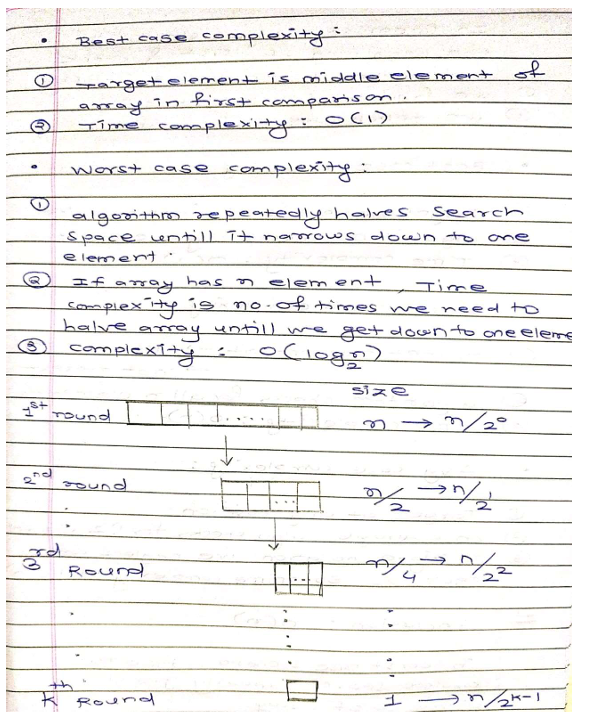 • Best case complexity :
① Target element is middle element of
array in first comparison .
② Time complexity : O(1)
• Worst case complexity :
① algorithm repeatedly halves search
space untill it narrows down to one
element .
② If array has n element , Time
complexity is no. of times we need to
halve array untill we get down to one eleme
③ complexity : O(log₂n)
size
1st round ..... n → n/2⁰
2nd round ... n/2 → n/2¹
3rd Round ... n/4 → n/2²
kth Round 1 → n/2ᴷ⁻¹